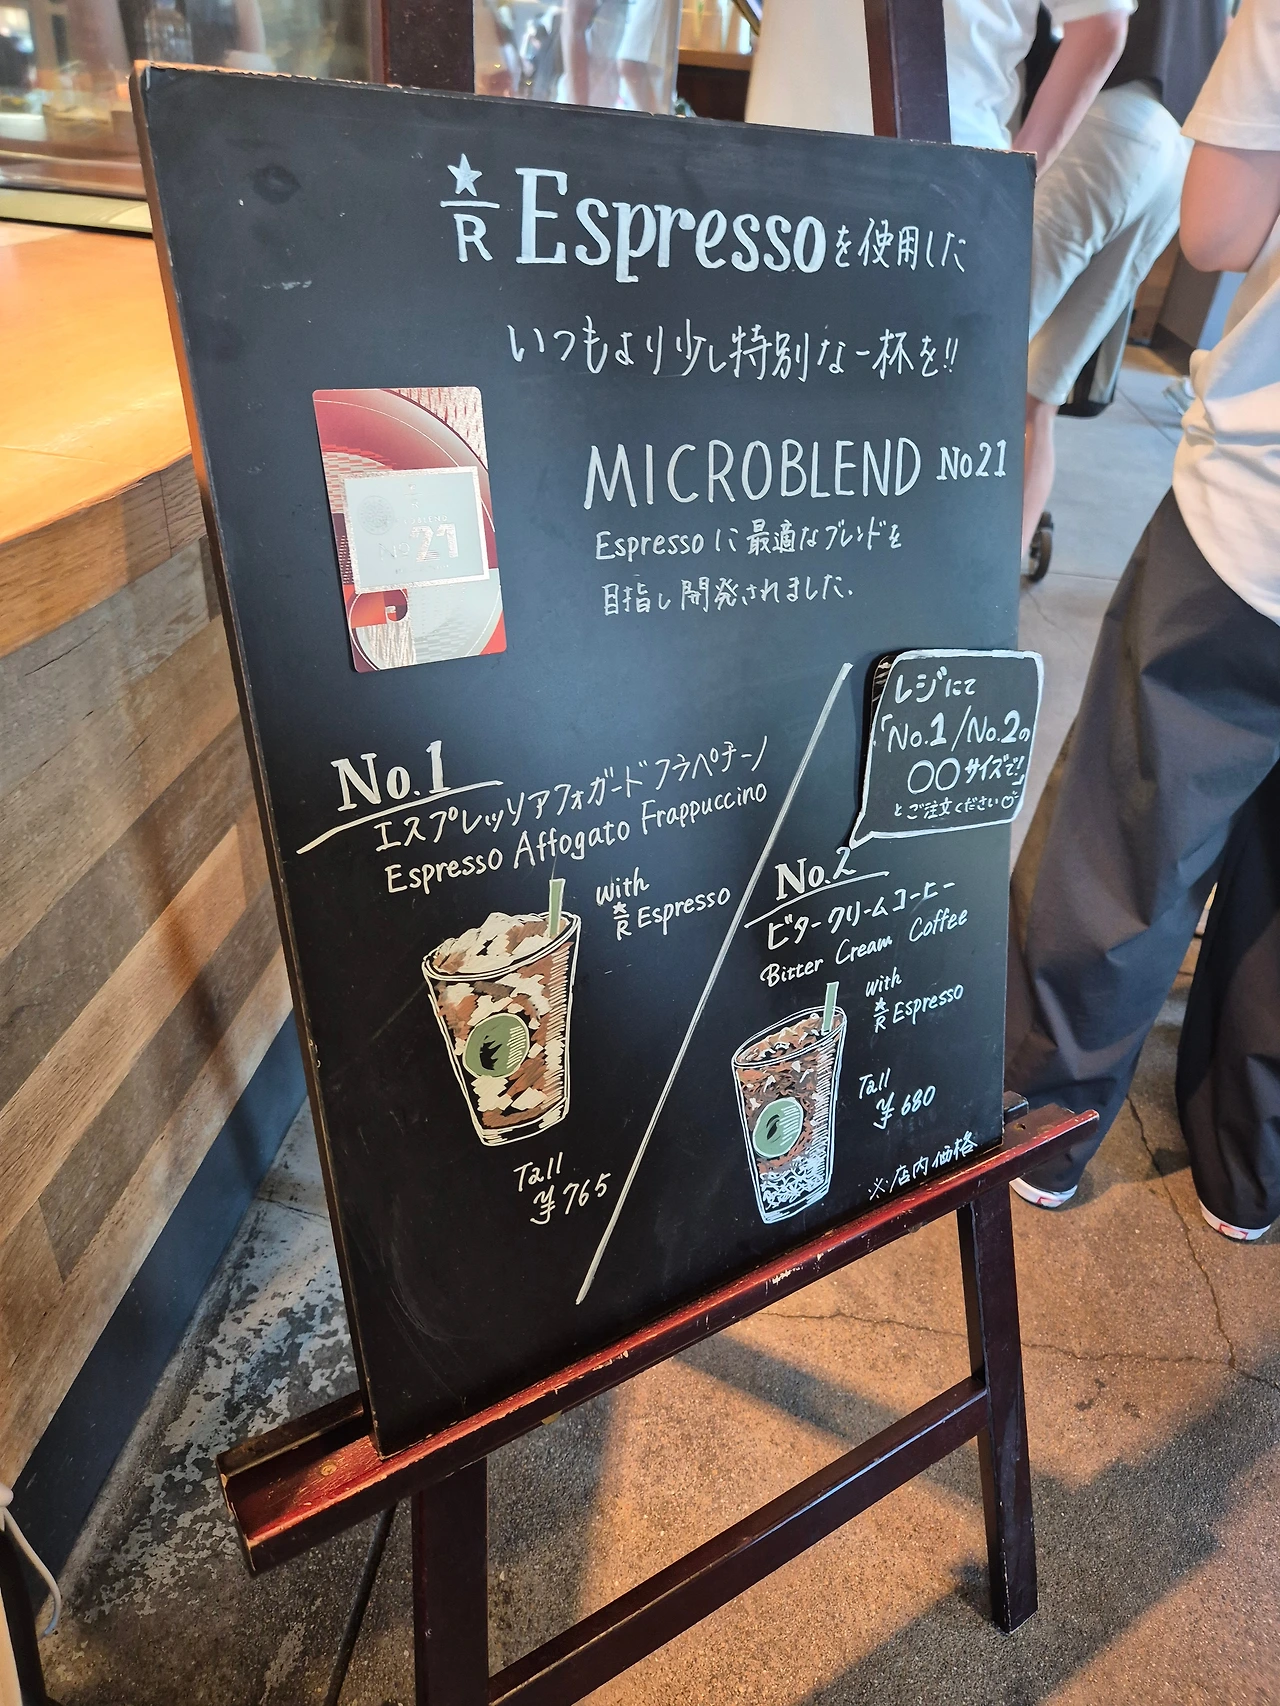 ★
R Espressoを使用した
いつもより少し特別な一杯を!!
No21
MICROBLEND No21
Espressoに最適なブレンドを
目指し開発されました.
レジにて
「No.1/No.2の
○○サイズで!」
とご注文ください
No.1
エスプレッソアフォガードフラペチーノ
Espresso Affogato Frappuccino
with
★
R Espresso
Tall
¥765
No.2
ビタークリームコーヒー
Bitter Cream Coffee
with
★
R Espresso
Tall
¥680
※店内価格